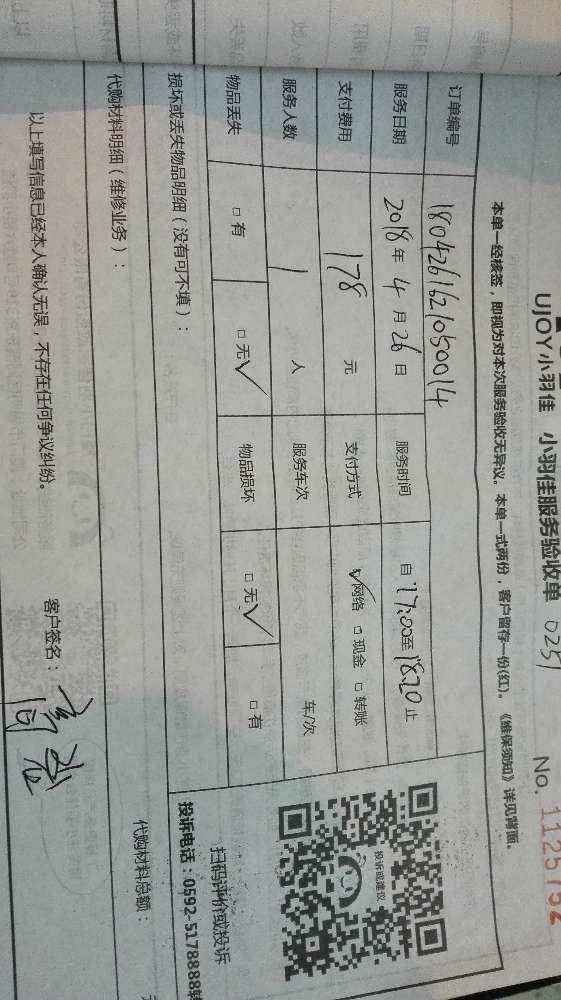 UJOY小羽佳 小羽佳服务验收单 0251 No. 1125752
本单一经核签，即视为对本次服务验收无异议。本单一式两份，客户留存一份(红)。《维保须知》详见背面。
订单编号 1804261621050014
服务日期 2018年4月26日 服务时间 自17:00至18:20止
支付费用 178元 支付方式 ☑网络 □现金 □转账
服务人数 1人 服务车次 车/次
物品丢失 □有 □无√ 物品损坏 □无√ □有
投诉或建议
扫码评价或投诉
投诉电话：0592-5178888转
损坏或丢失物品明细（没有可不填）：
代购材料明细（维修业务）： 代购材料总额：
以上填写信息已经本人确认无误，不存在任何争议纠纷。 客户签名：